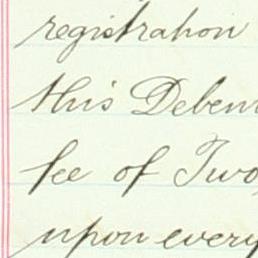 registration
this Deben
fee of Two
upon every